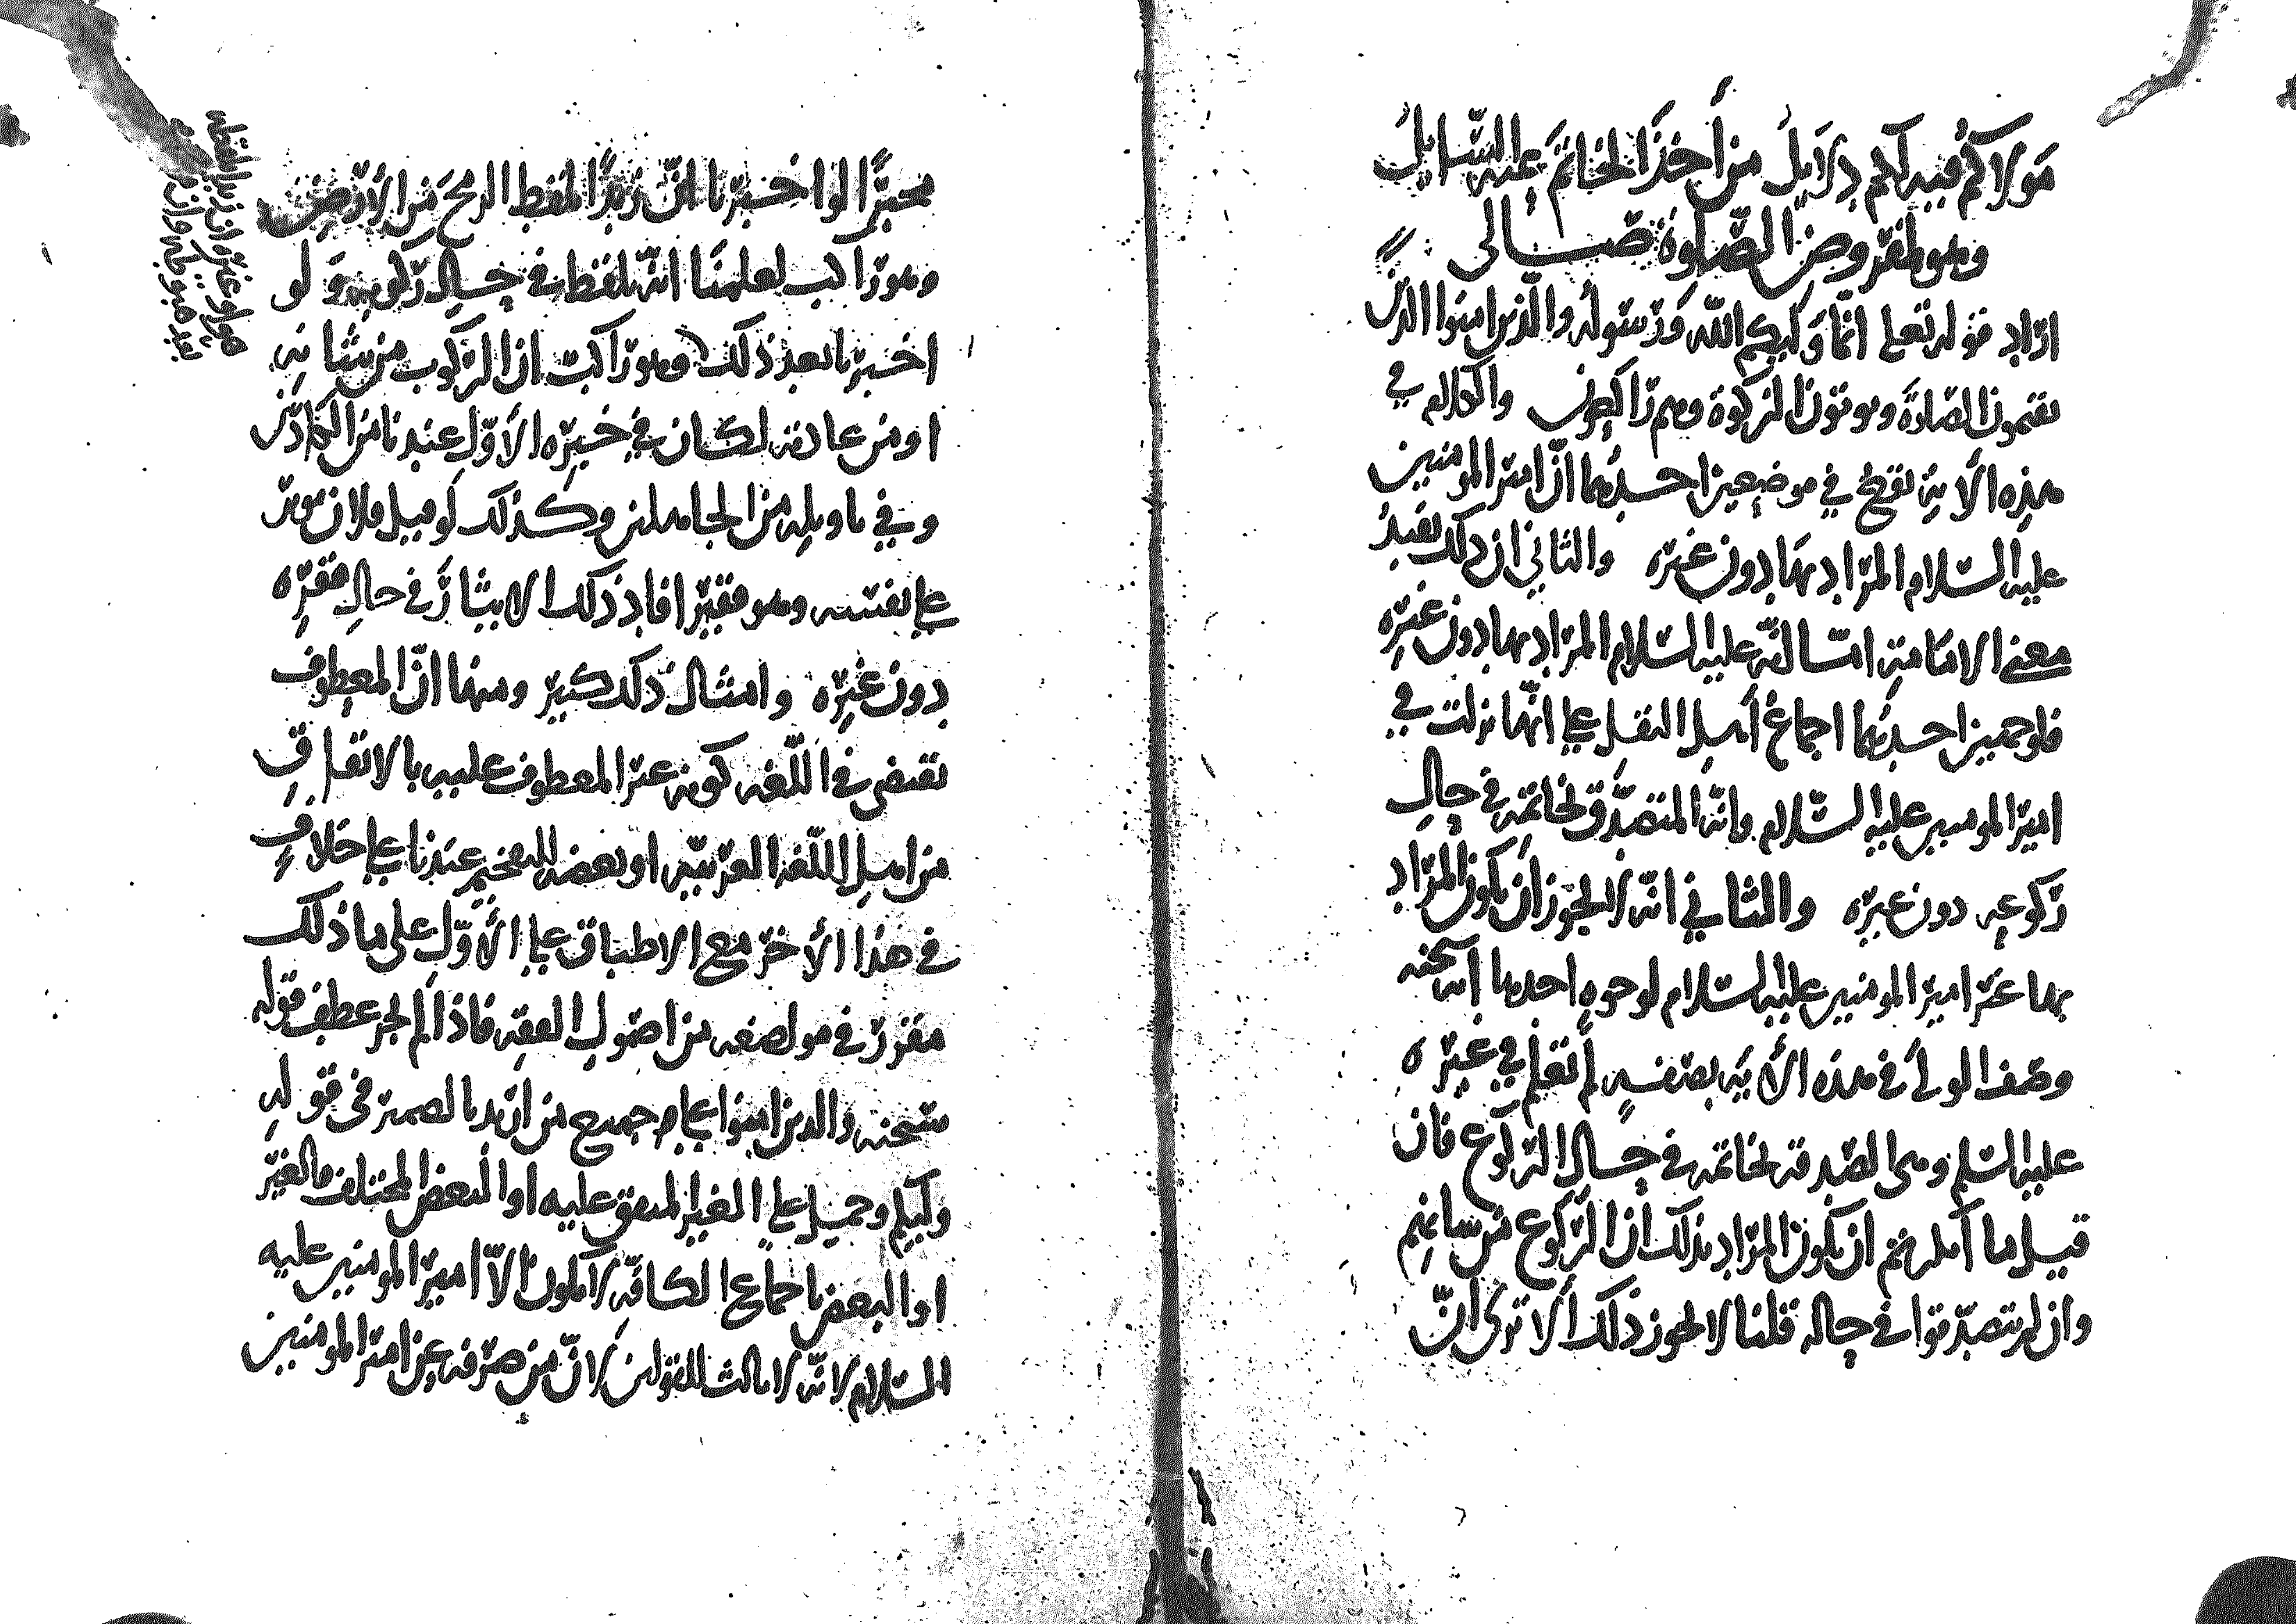 مَولاكم فيه لكم دلايل من أخذ الخاتم عنه السايل
وهو لمفروض الصلوة صالي
اراد قوله تعلى انما وليكم الله ورسوله والذين امنوا الذين
يقيمون الصلاة ويوتون الزكوة وهم راكعون والكلام في
هذه الآية يقع في موضعين احدهما ان امير المومنين
عليه السلام المراد بها دون غيره والثاني ان ذلك يفيد
معنى الامامة اما انه عليه السلام المراد بها دون غيره
فلوجهين احدهما اجماع أهل النقل على انها نزلت في
امير المومنين عليه السلام وانه المتصدق بخاتمه في حال
ركوعه دون غيره والثاني انه لا يجوز أن يكون المراد
بها غير امير المومنين عليه السلام لوجوه احدها انه سبحنه
وصف الولي في هذه الآية بصفة لم نعلم في غيره
عليه السلم وهي الصدقة بخاتمه في حال الركوع فان
قيل ما أنكرتم ان يكون المراد بذلك ان الركوع من شانهم
وان لم يتصدقوا في حاله قلنا لا يجوز ذلك ألا ترى ان
مخبرا لوا خبرنا ان زيدا لفظ الرمح من الأرض
وهو راكب لعلمنا انه لفظ في حال ركوبه ولو
اخبرنا بعد ذلك وهو راكب ان الركوب من شانه
او من عادته لكان في خبره الأول عندنا من الكاذبين
وفي تاويله من الجاهلين وكذلك لو قيل فلان يوثر
على نفسه وهو فقير افاد ذلك الايثار في حال فقره
دون غيره وامثال ذلك كثير ومنها ان المعطوف
يقتضي في اللغه كونه غير المعطوف عليه بالاتفاق
من اهل اللغه العربيه او بعضه للتفخيم عندنا على خلاف
في هذا الأخر مع الاطباق على الأول على ما ذلك
مقرر في مواضعه من اصول الفقه فاذا لم يجز عطف قوله
سبحنه والذين امنوا على جميع من اريد بالضمير في قوله
وليكم وحمل على الغير المتفق عليه او البعض المختلف فالغير
او البعض باجماع الكافه لا يكون الا امير المومنين عليه
السلام لانه لا ثالث للقولين لان من صرفه عن امير المومنين